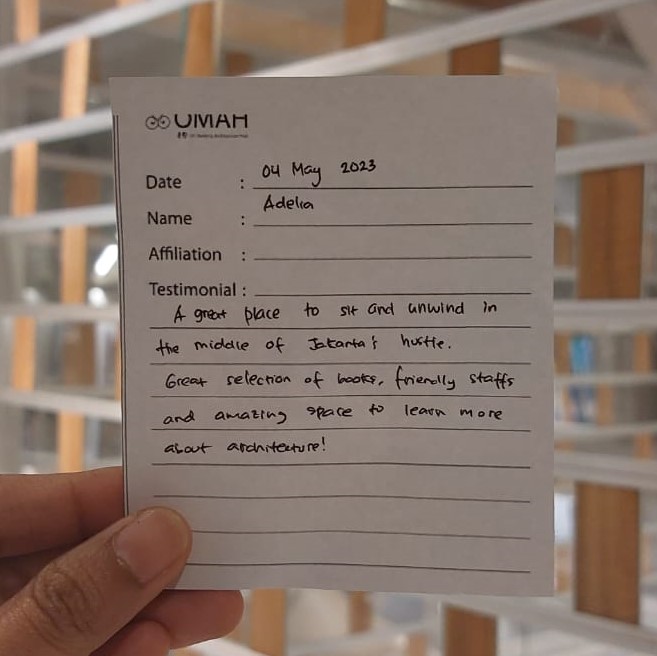 OMAH
Date : 04 May 2023
Name : Adelia
Affiliation :
Testimonial :
A great place to sit and unwind in
the middle of Jakarta's hustle.
Great selection of books, friendly staffs
and amazing space to learn more
about architecture!